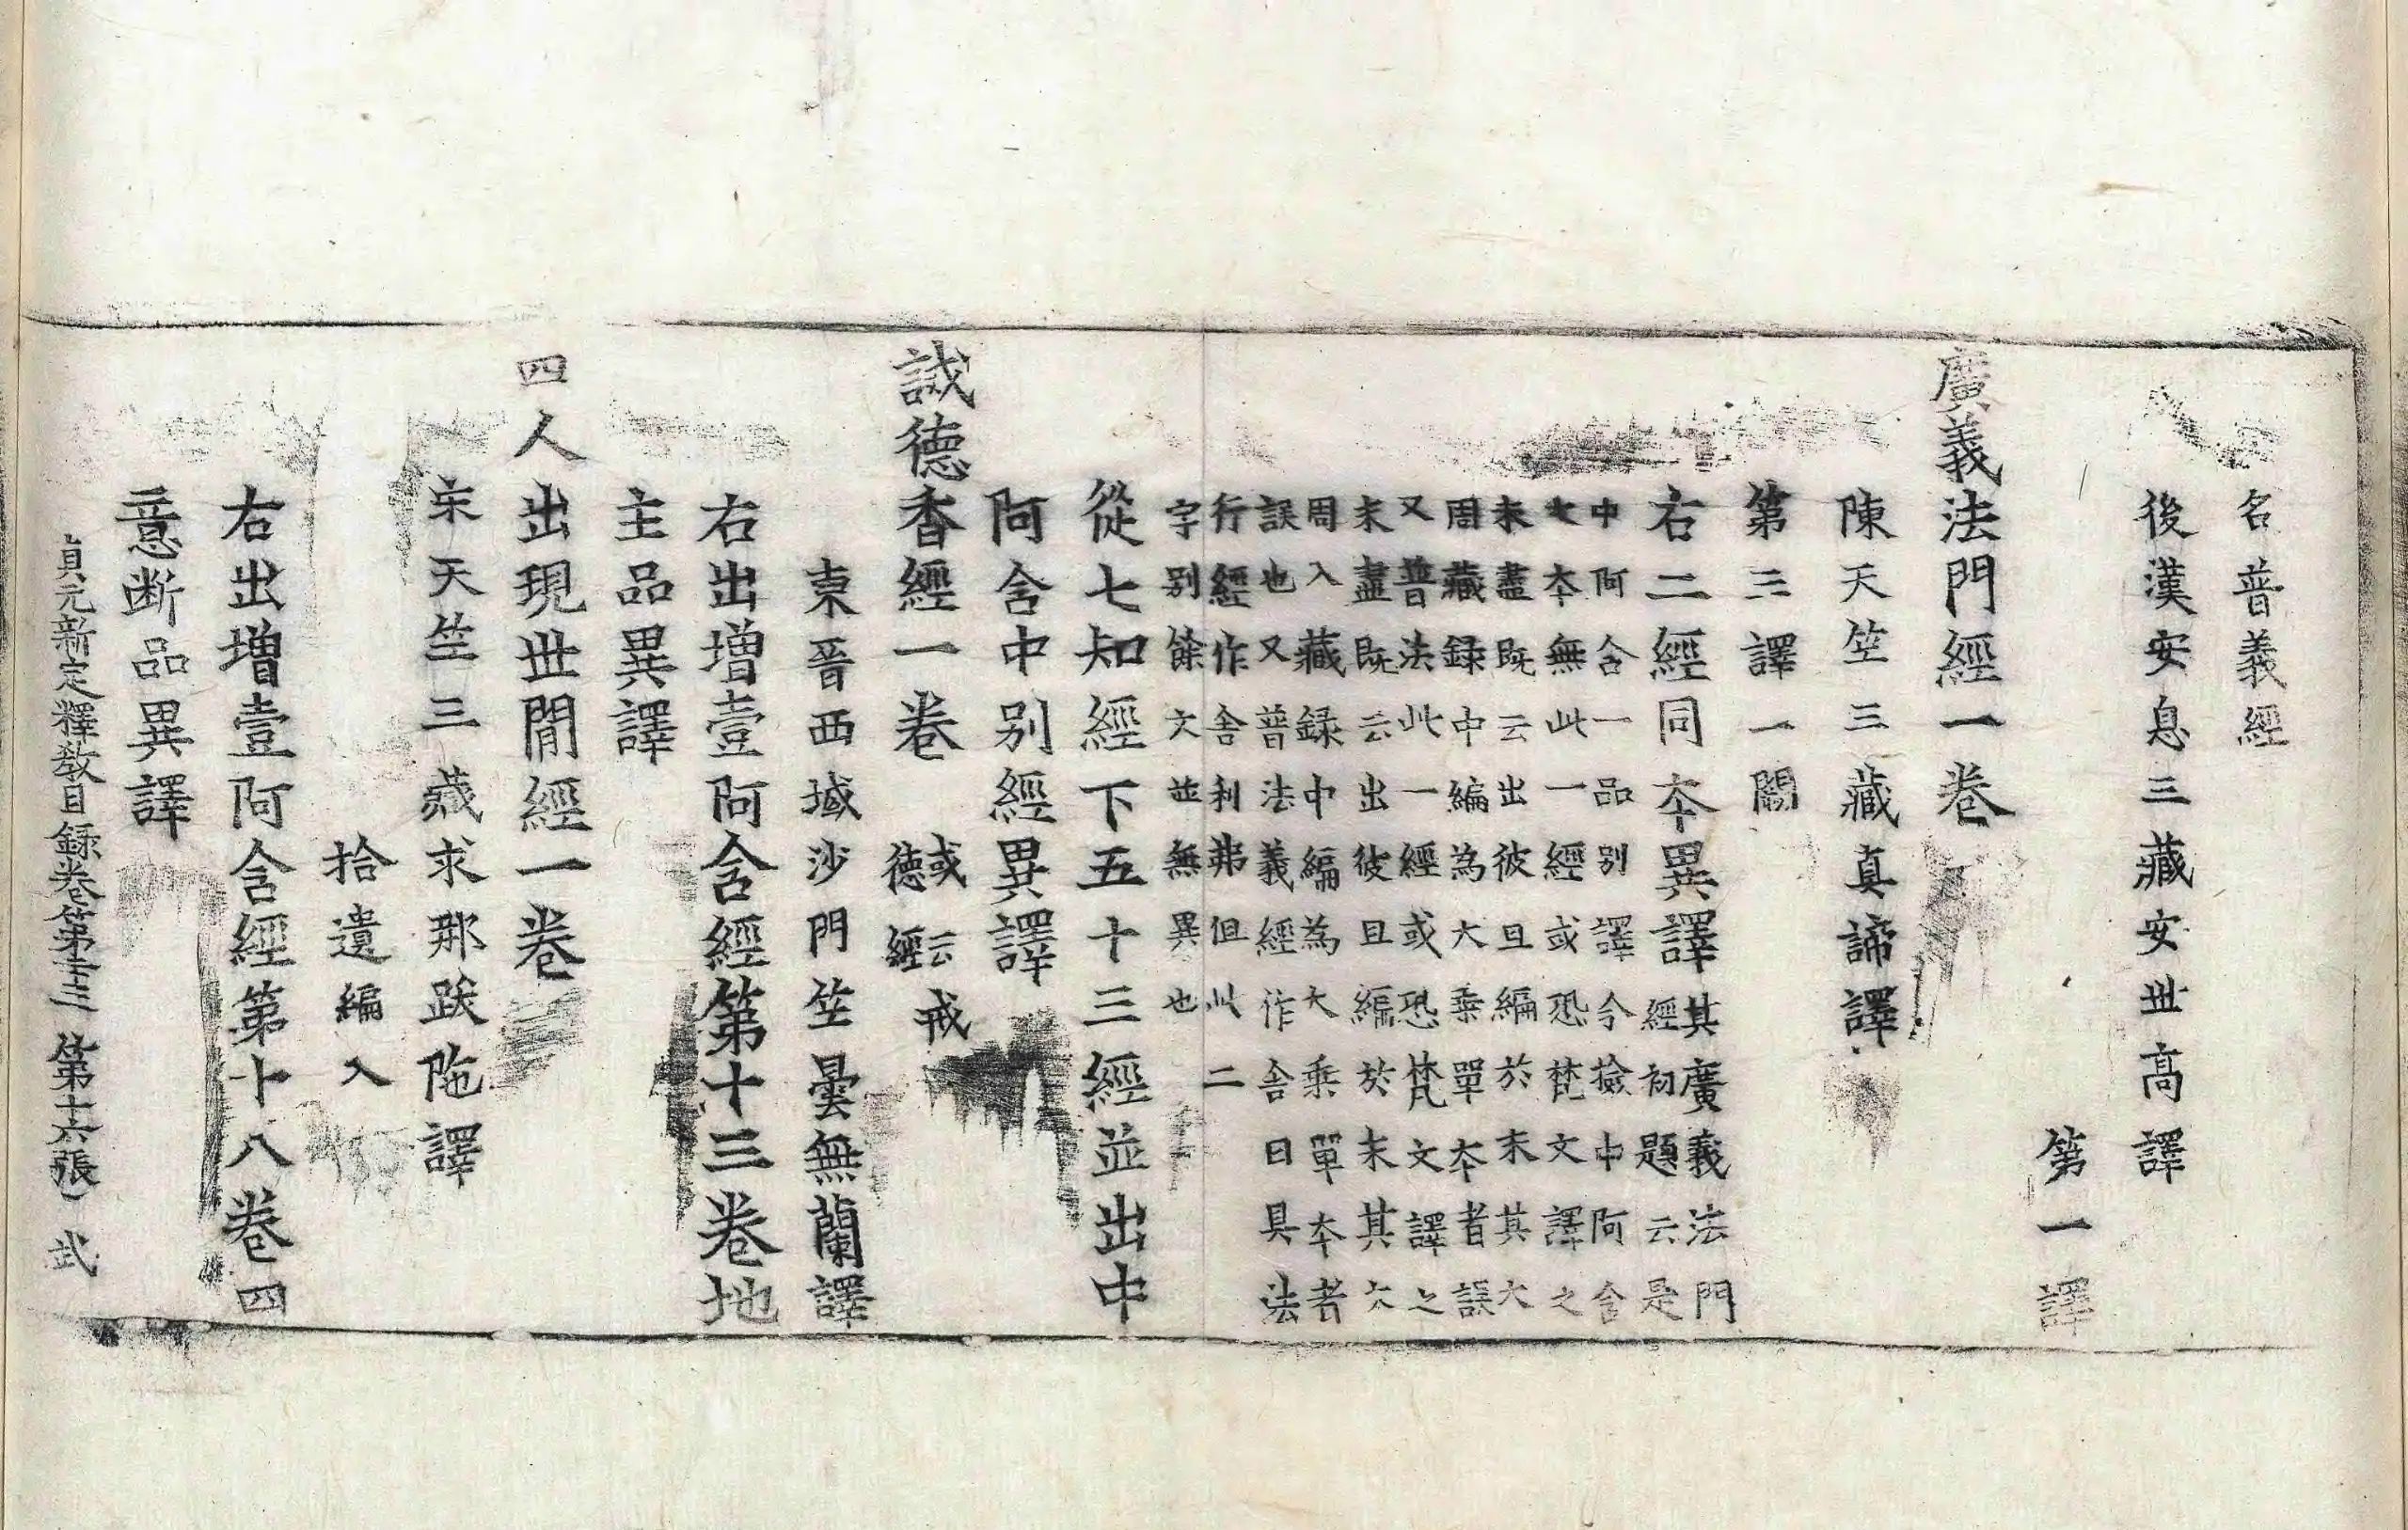 名普義經
後漢安息三藏安世高譯
第一譯
廣義法門經一卷
陳天竺三藏真諦譯
第三譯一闕
右二經同夲異譯其廣義法門
經初題云是
中阿含一品別譯今撿中阿含
大夲無此一經或恐梵文譯之
未盡既云出彼且編於末其大
周藏録中編為大乗單夲者誤
又普法此一經或恐梵文譯之
未盡既云出彼且編於末其大
周入藏録中編為大乗單夲者
誤也又普法義經作舍曰具法
行經作舍利弗但此二
字别餘文並無異也
從七知經下五十三經並出中
阿含中别經異譯
誡德香經一卷或云戒
德經
東晉西域沙門竺曇無蘭譯
右出增壹阿含經第十三卷地
主品異譯
四人出現世間經一卷
宋天竺三藏求那跋陁譯
拾遺編入
右出增壹阿含經第十八卷四
意断品異譯
貞元新定釋教目録卷第二十三 第十六張 武